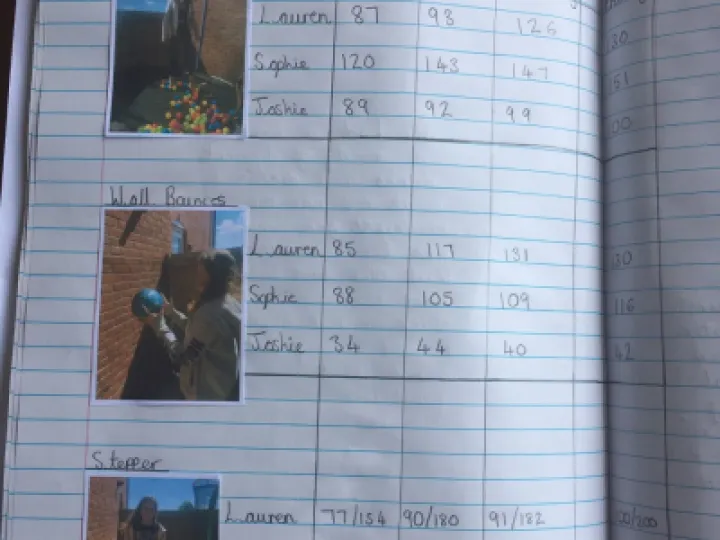 Lauren 87 93 126 30
Sophie 120 143 147 151
Joshie 89 92 99 100
Wall Bounces
Lauren 85 117 131 130
Sophie 88 105 109 116
Joshie 34 44 40 42
Stepper
Lauren 77/154 90/180 91/182 /200